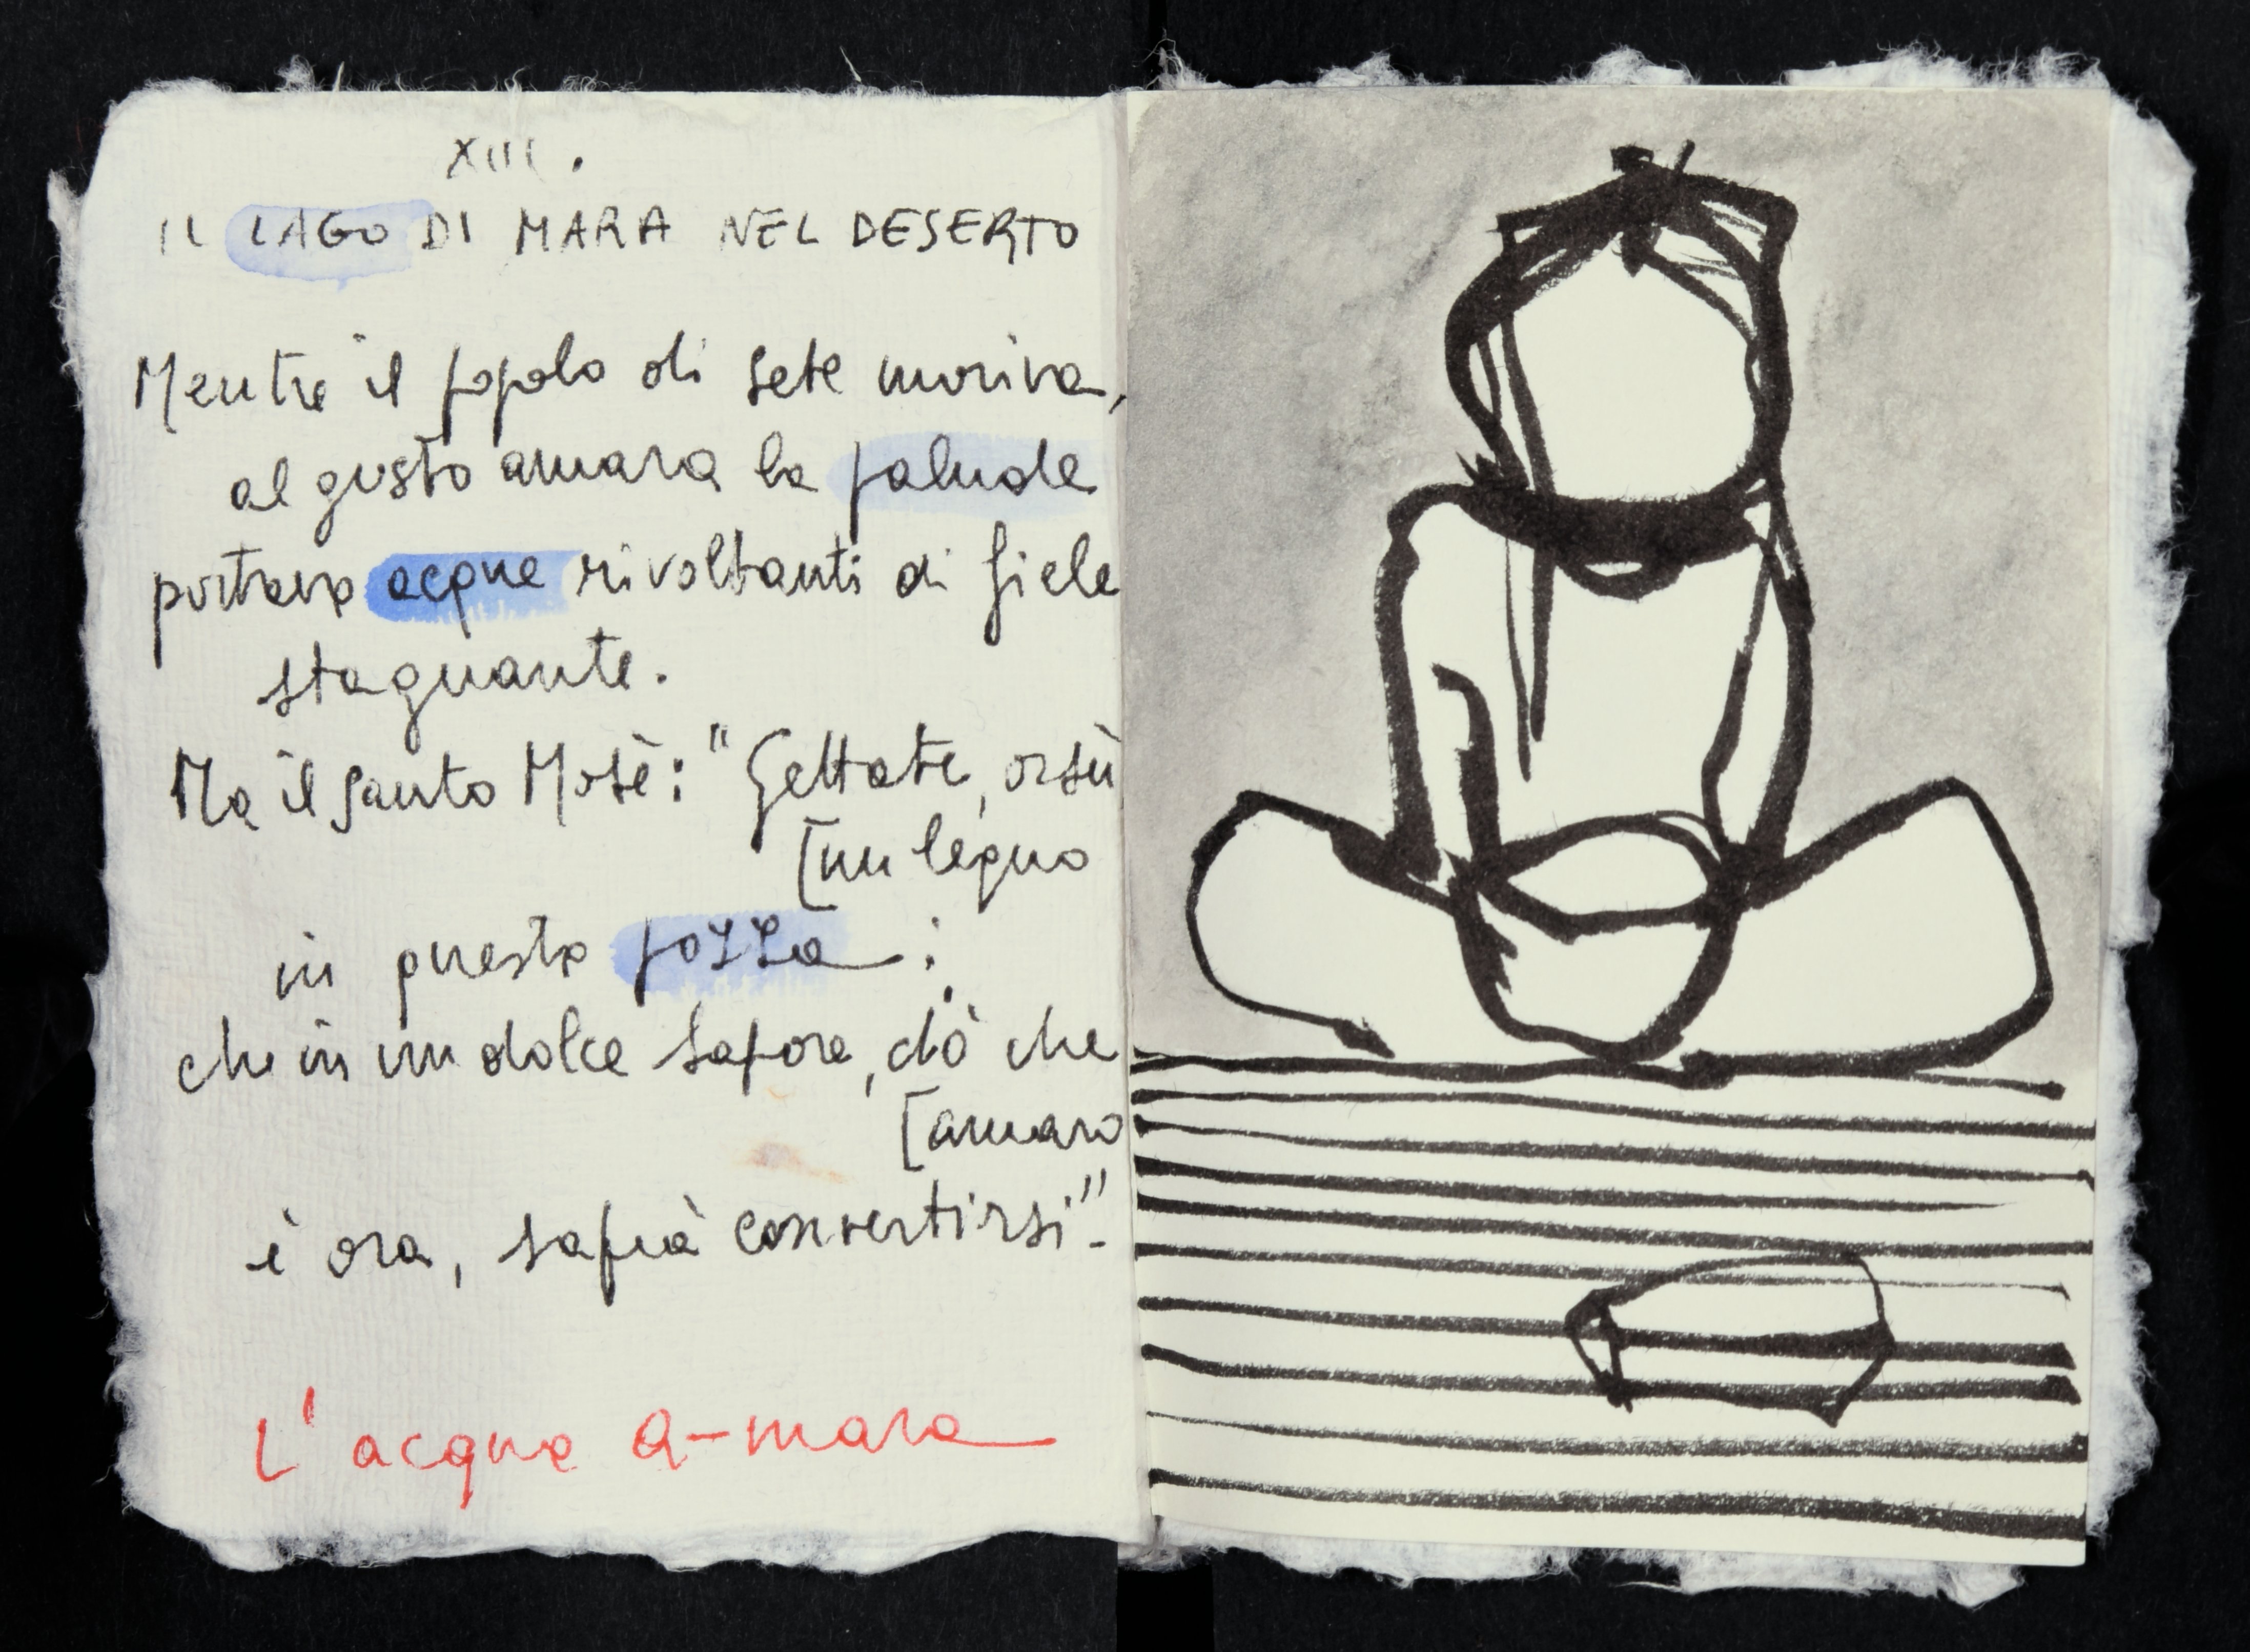 XIII.
IL LAGO DI MARA NEL DESERTO
Mentre il popolo di sete moriva,
al gusto amara la palude
portava acque rivoltanti di fiele
stagnante.
Ma il santo Mosè: "Gettate, orsù
[un legno
in questa pozza:
che in un dolce sapore, ciò che
[amaro
è ora, saprà convertirsi".
L'acqua a-mara